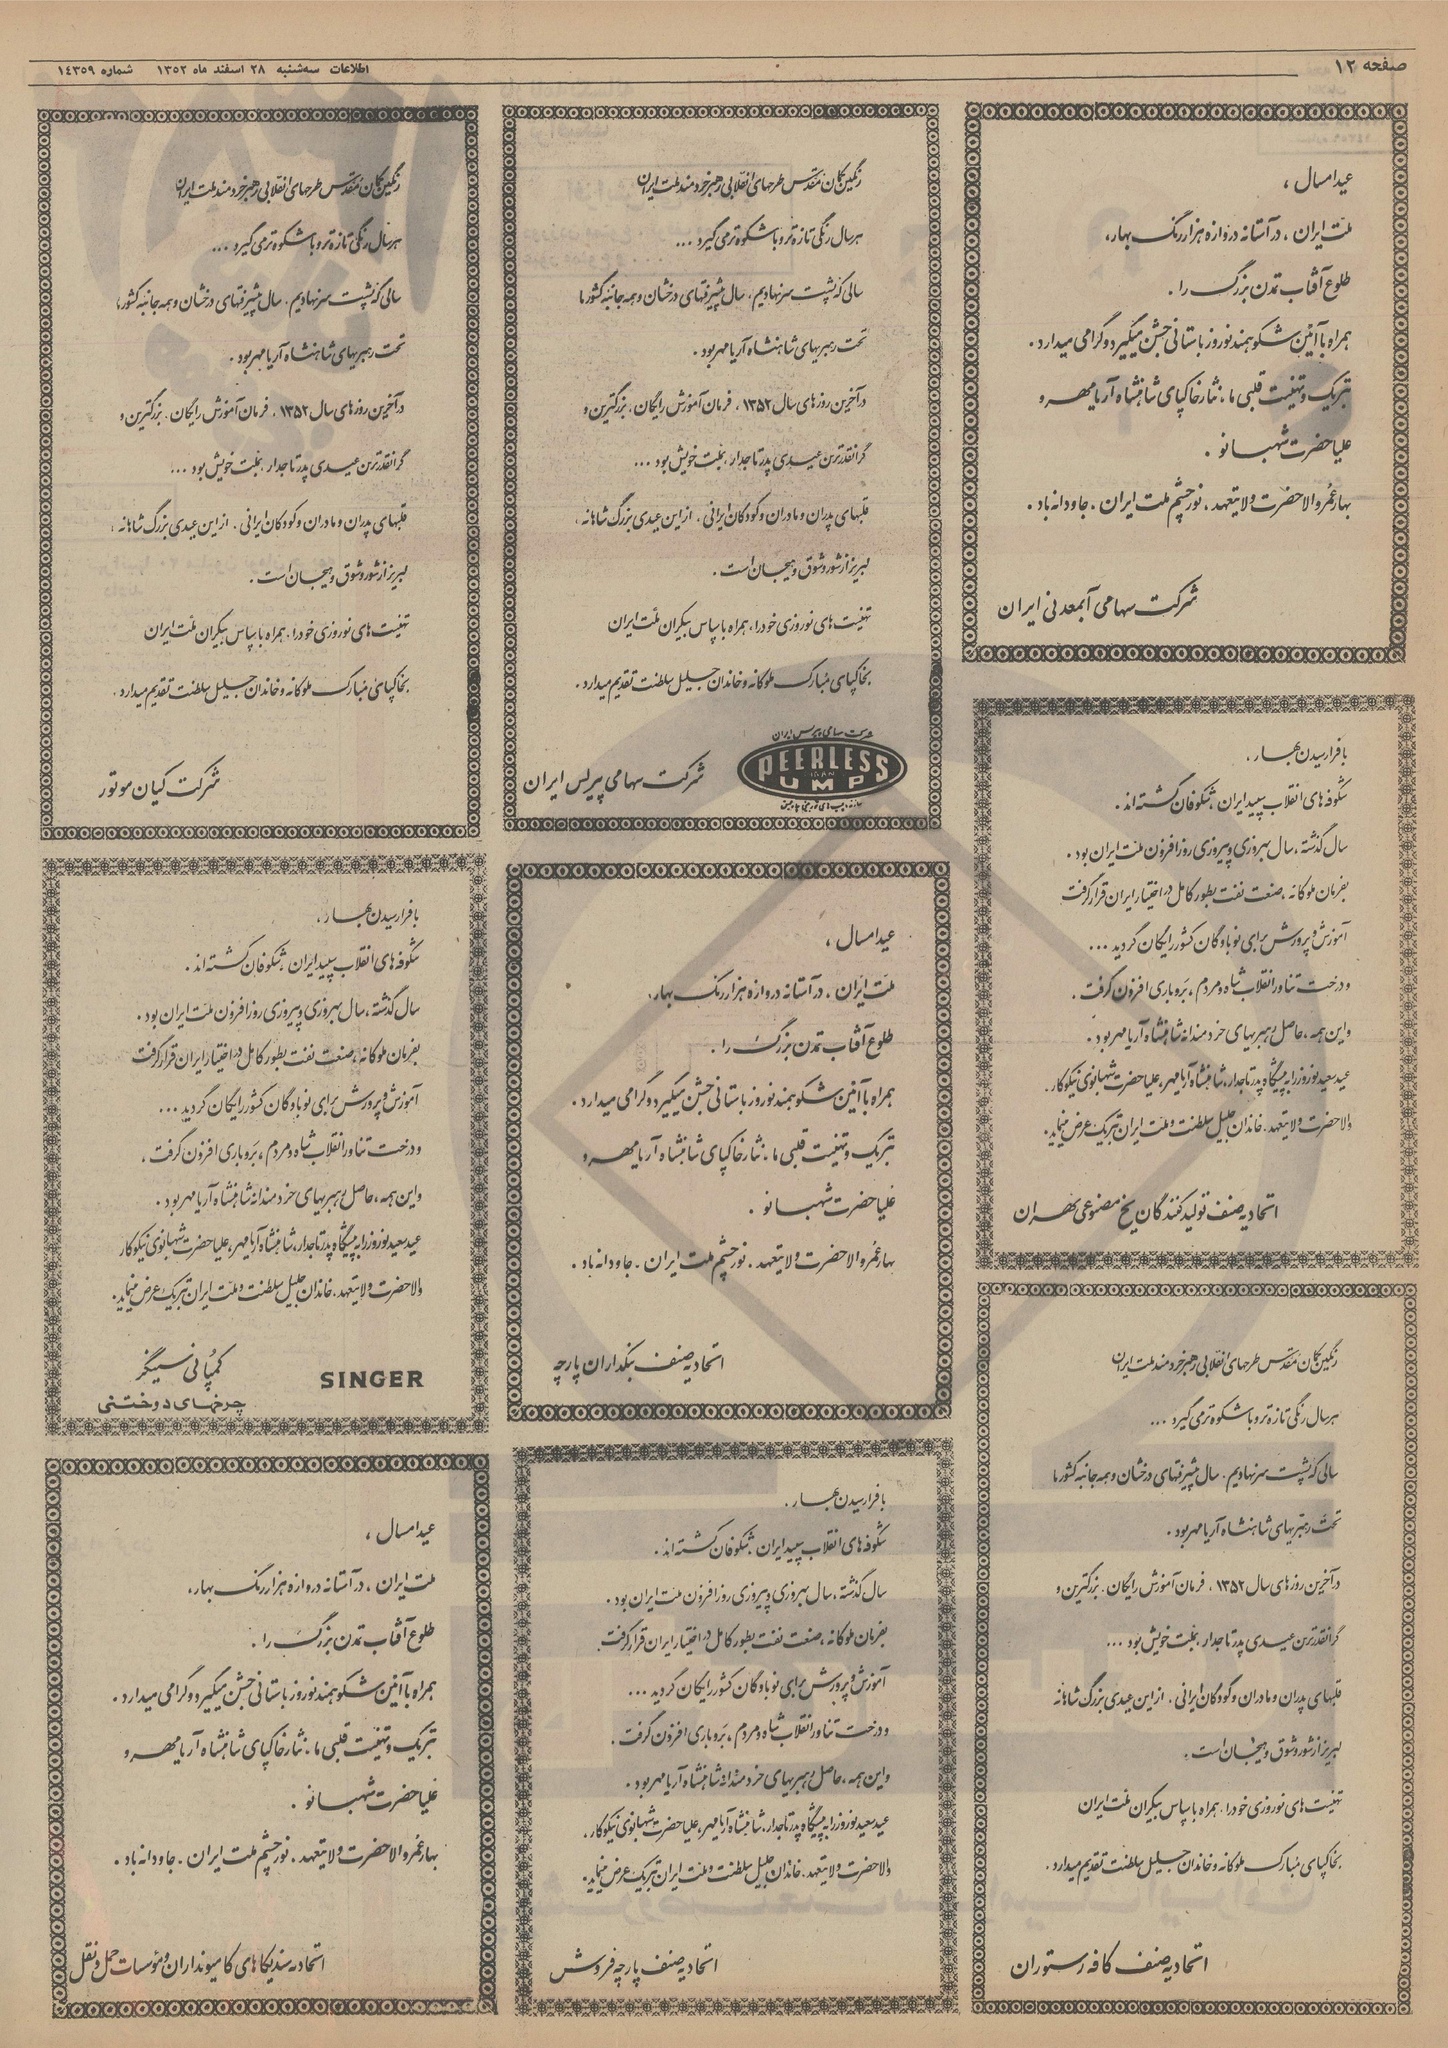 صفحه ۱۲
اطلاعات سه‌شنبه ۲۸ اسفند ماه ۱۳۵۲ شماره ۱۴۳۵۹
عید امسال ،
ملت ایران ، در آستانه دروازه هزار رنگ بهار،
طلوع آفتاب تمدن بزرگ را .
همراه با آئین شکوهمند نوروز باستانی جشن میگیرد و گرامی میدارد .
تبریک و تهنیت قلبی ما ، نثار خاکپای شاهنشاه آریامهر و
علیا حضرت شهبانو .
بهار عمر والاحضرت ولایتعهد ، نور چشم ملت ایران ، جاودانه باد .
شرکت سهامی آبمعدنی ایران
رنگین کمان مقدس طرحهای انقلابی رهبر خردمند ملت ایران
هر سال رنگی تازه‌تر و باشکوه‌تر می گیرد ...
سالی که پشت سر نهادیم . سال پیشرفتهای درخشان و همه جانبه کشور ما
تحت رهبریهای شاهنشاه آریامهر بود .
در آخرین روزهای سال ۱۳۵۲ ، فرمان آموزش رایگان ، بزرگترین و
گرانقدرترین عیدی پدر تاجدار ، بملت خویش بود ...
قلبهای پدران و مادران و کودکان ایرانی . از این عیدی بزرگ شاهانه ،
لبریز از شور و شوق و هیجان است .
تهنیت های نوروزی خود را ، همراه با سپاس بیکران ملت ایران
بخاکپای مبارک ملوکانه و خاندان جلیل سلطنت تقدیم میدارد .
شرکت سهامی پیرلس ایران
PEERLESS
IRAN
PUMP
شرکت سهامی پیرلس ایران
رنگین کمان مقدس طرحهای انقلابی رهبر خردمند ملت ایران
هر سال رنگی تازه تر و باشکوه تر می گیرد ...
سالی که پشت سر نهادیم . سال پیشرفتهای درخشان و همه جانبه کشور ما
تحت رهبریهای شاهنشاه آریامهر بود .
در آخرین روزهای سال ۱۳۵۲ ، فرمان آموزش رایگان . بزرگترین و
گرانقدرترین عیدی پدر تاجدار ، بملت خویش بود ...
قلبهای پدران و مادران و کودکان ایرانی . از این عیدی بزرگ شاهانه ،
لبریز از شور و شوق و هیجان است .
تهنیت های نوروزی خود را ، همراه با سپاس بیکران ملت ایران
بخاکپای مبارک ملوکانه و خاندان جلیل سلطنت تقدیم میدارد .
شرکت کیان موتور
با فرارسیدن بهار ،
شکوفه های انقلاب سپید ایران ، شکوفان گشته اند .
سال گذشته ، سال بهروزی و پیروزی روزافزون ملت ایران بود .
بفرمان ملوکانه ، صنعت نفت بطور کامل در اختیار ایران قرار گرفت
آموزش و پرورش برای نوباوگان کشور رایگان گردید ...
و درخت تناور انقلاب شاه و مردم ، بر و باری افزون گرفت .
و این همه ، حاصل رهبریهای خردمندانه شاهنشاه آریامهر بود .
عید سعید نوروز را به پیشگاه پدر تاجدار، شاهنشاه آریامهر ، علیا حضرت شهبانوی نیکوکار .
والاحضرت ولایتعهد . خاندان جلیل سلطنت و ملت ایران تبریک عرض مینماید .
اتحادیه صنف تولید کنندگان یخ مصنوعی تهران
عید امسال ،
ملت ایران ، در آستانه دروازه هزار رنگ بهار ،
طلوع آفتاب تمدن بزرگ را .
همراه با آئین شکوهمند نوروز باستانی جشن میگیرد و گرامی میدارد .
تبریک و تهنیت قلبی ما ، نثار خاکپای شاهنشاه آریامهر و
علیا حضرت شهبانو .
بهار عمر والاحضرت ولایتعهد . نور چشم ملت ایران . جاودانه باد .
اتحادیه صنف بنکداران پارچه
با فرارسیدن بهار ،
شکوفه های انقلاب سپید ایران ، شکوفان گشته اند .
سال گذشته ، سال بهروزی و پیروزی روزافزون ملت ایران بود .
بفرمان ملوکانه ، صنعت نفت بطور کامل در اختیار ایران قرار گرفت
آموزش و پرورش برای نوباوگان کشور رایگان گردید ...
و درخت تناور انقلاب شاه و مردم ، بر و باری افزون گرفت ،
و این همه ، حاصل رهبریهای خردمندانه شاهنشاه آریامهر بود .
عید سعید نوروز را به پیشگاه پدر تاجدار، شاهنشاه آریامهر ، علیا حضرت شهبانوی نیکوکار
والاحضرت ولایتعهد . خاندان جلیل سلطنت و ملت ایران تبریک عرض مینماید .
SINGER
کمپانی سینگر
چرخهای دوختنی
رنگین کمان مقدس طرحهای انقلابی رهبر خردمند ملت ایران
هر سال رنگی تازه تر و باشکوه تر می گیرد ...
سالی که پشت سر نهادیم . سال پیشرفتهای درخشان و همه جانبه کشور ما
تحت رهبریهای شاهنشاه آریامهر بود .
در آخرین روزهای سال ۱۳۵۲ ، فرمان آموزش رایگان . بزرگترین و
گرانقدرترین عیدی پدر تاجدار ، بملت خویش بود ...
قلبهای پدران و مادران و کودکان ایرانی . از این عیدی بزرگ شاهانه
لبریز از شور و شوق و هیجان است .
تهنیت های نوروزی خود را ، همراه با سپاس بیکران ملت ایران
بخاکپای مبارک ملوکانه و خاندان جلیل سلطنت تقدیم میدارد .
اتحادیه صنف کافه رستوران
با فرارسیدن بهار ،
شکوفه های انقلاب سپید ایران ، شکوفان گشته اند .
سال گذشته ، سال بهروزی و پیروزی روزافزون ملت ایران بود .
بفرمان ملوکانه ، صنعت نفت بطور کامل در اختیار ایران قرار گرفت
آموزش و پرورش برای نوباوگان کشور رایگان گردید ...
و درخت تناور انقلاب شاه و مردم ، بر و باری افزون گرفت .
و این همه ، حاصل رهبریهای خردمندانه شاهنشاه آریامهر بود .
عید سعید نوروز را به پیشگاه پدر تاجدار، شاهنشاه آریامهر ، علیا حضرت شهبانوی نیکوکار .
والاحضرت ولایتعهد . خاندان جلیل سلطنت و ملت ایران تبریک عرض مینماید .
اتحادیه صنف پارچه فروش
عید امسال ،
ملت ایران ، در آستانه دروازه هزار رنگ بهار ،
طلوع آفتاب تمدن بزرگ را .
همراه با آئین شکوهمند نوروز باستانی جشن میگیرد و گرامی میدارد .
تبریک و تهنیت قلبی ما ، نثار خاکپای شاهنشاه آریامهر و
علیا حضرت شهبانو .
بهار عمر والاحضرت ولایتعهد . نور چشم ملت ایران . جاودانه باد .
اتحادیه سندیکاهای کامیونداران و مؤسسات حمل و نقل